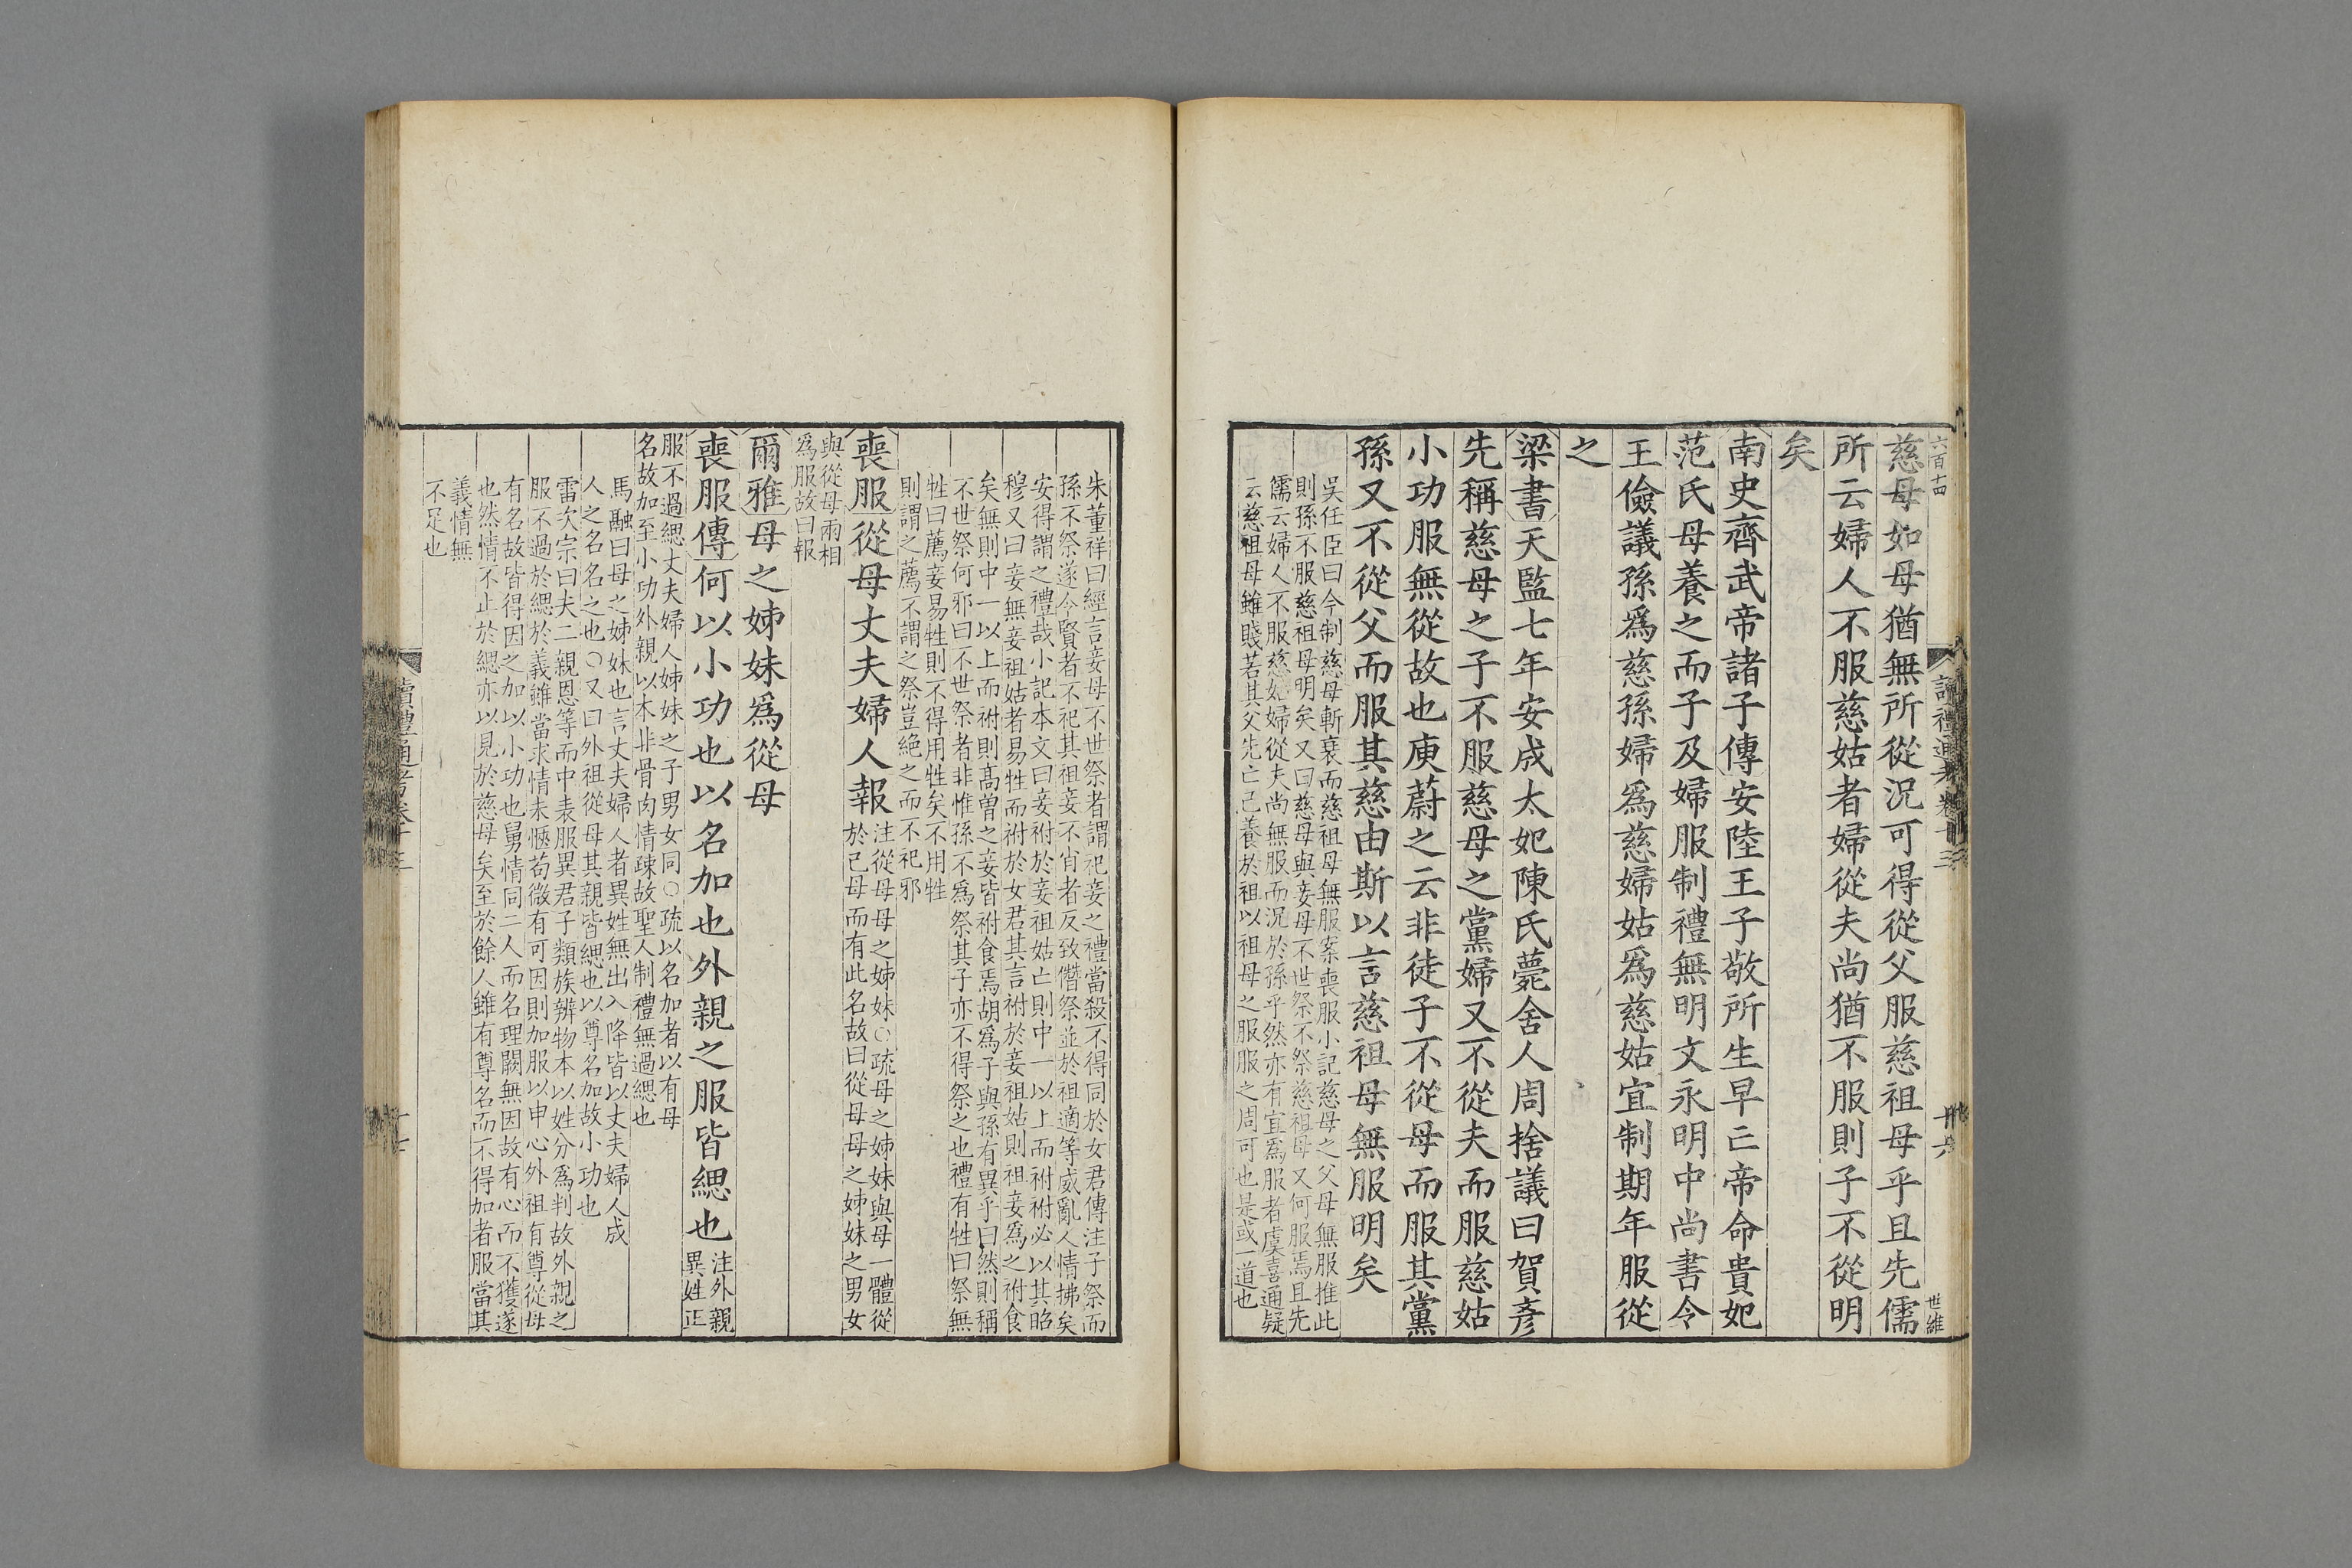 六百十四
世維
慈母如母猶無所從況可得從父服慈祖母乎且先儒
所云婦人不服慈姑者婦從夫尚猶不服則子不從明
矣
南史齊武帝諸子傳安陸王子敬所生早亡帝命貴妃
范氏母養之而子及婦服制禮無明文永明中尚書令
王儉議孫爲慈孫婦爲慈婦姑爲慈姑宜制期年服從
之
梁書天監七年安成太妃陳氏薨舍人周捨議曰賀彥
先稱慈母之子不服慈母之黨婦又不從夫而服慈姑
小功服無從故也庾蔚之云非徒子不從母而服其黨
孫又不從父而服其慈由斯以言慈祖母無服明矣
吳任臣曰今制慈母斬衰而慈祖母無服案喪服小記慈母之父母無服推此
則孫不服慈祖母明矣又曰慈母與妾母不世祭不祭慈祖母又何服焉且先
儒云婦人不服慈姑婦從夫尚無服而況於孫乎然亦有宜爲服者虞喜通疑
云慈祖母雖賤若其父先亡己養於祖以祖母之服服之周可也是或一道也
朱董祥曰經言妾母不世祭者謂祀妾之禮當殺不得同於女君傳注子祭而
孫不祭遂令賢者不祀其祖妾不肖者反致僭祭並於祖適等威亂人情拂矣
安得謂之禮哉小記本文曰妾祔於妾祖姑亡則中一以上而祔祔必以其昭
穆又曰妾無妾祖姑者易牲而祔於女君其言祔於妾祖姑則祖妾爲之祔食
矣無則中一以上而祔則高曽之妾皆祔食焉胡爲子與孫有異乎曰然則稱
不世祭何邪曰不世祭者非惟孫不爲祭其子亦不得祭之也禮有牲曰祭無
牲曰薦妾易牲則不得用牲矣不用牲
則謂之薦不謂之祭豈絶之而不祀邪
喪服從母丈夫婦人報
注從母母之姊妹○疏母之姊妹與母一體從
於己母而有此名故曰從母母之姊妹之男女
與從母兩相
爲服故曰報
爾雅母之姊妹爲從母
喪服傳何以小功也以名加也外親之服皆緦也
注外親
異姓正
服不過緦丈夫婦人姊妹之子男女同○疏以名加者以有母
名故加至小功外親以本非骨肉情疎故聖人制禮無過緦也
馬融曰母之姊妹也言丈夫婦人者異姓無出入降皆以丈夫婦人成
人之名名之也○又曰外祖從母其親皆緦也以尊名加故小功也
雷次宗曰夫二親恩等而中表服異君子類族辨物本以姓分爲判故外親之
服不過於緦於義雖當求情未愜苟微有可因則加服以申心外祖有尊從母
有名故皆得因之加以小功也舅情同二人而名理闕無因故有心而不獲遂
也然情不止於緦亦以見於慈母矣至於餘人雖有尊名而不得加者服當其
義情無
不足也
讀禮通考卷十三
十七